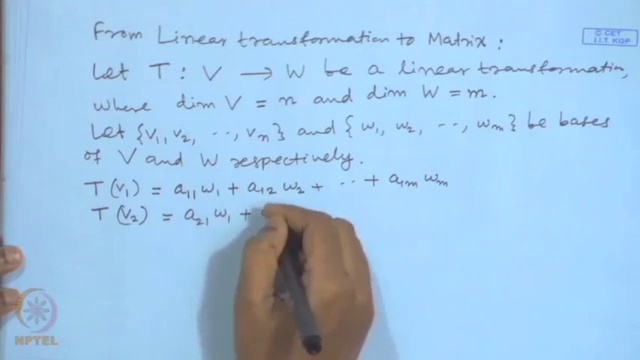 From Linear transformation to Matrix :
© CET
I.I.T. KGP
Let T : V → W be a linear transformation,
where dim V = n and dim W = m.
Let {v₁, v₂, ‥, vₙ} and {w₁, w₂, ‥, wₘ} be bases
of V and W respectively.
T(v₁) = a₁₁w₁ + a₁₂w₂ + ‥ + a₁ₘwₘ
T(v₂) = a₂₁w₁ +
NPTEL